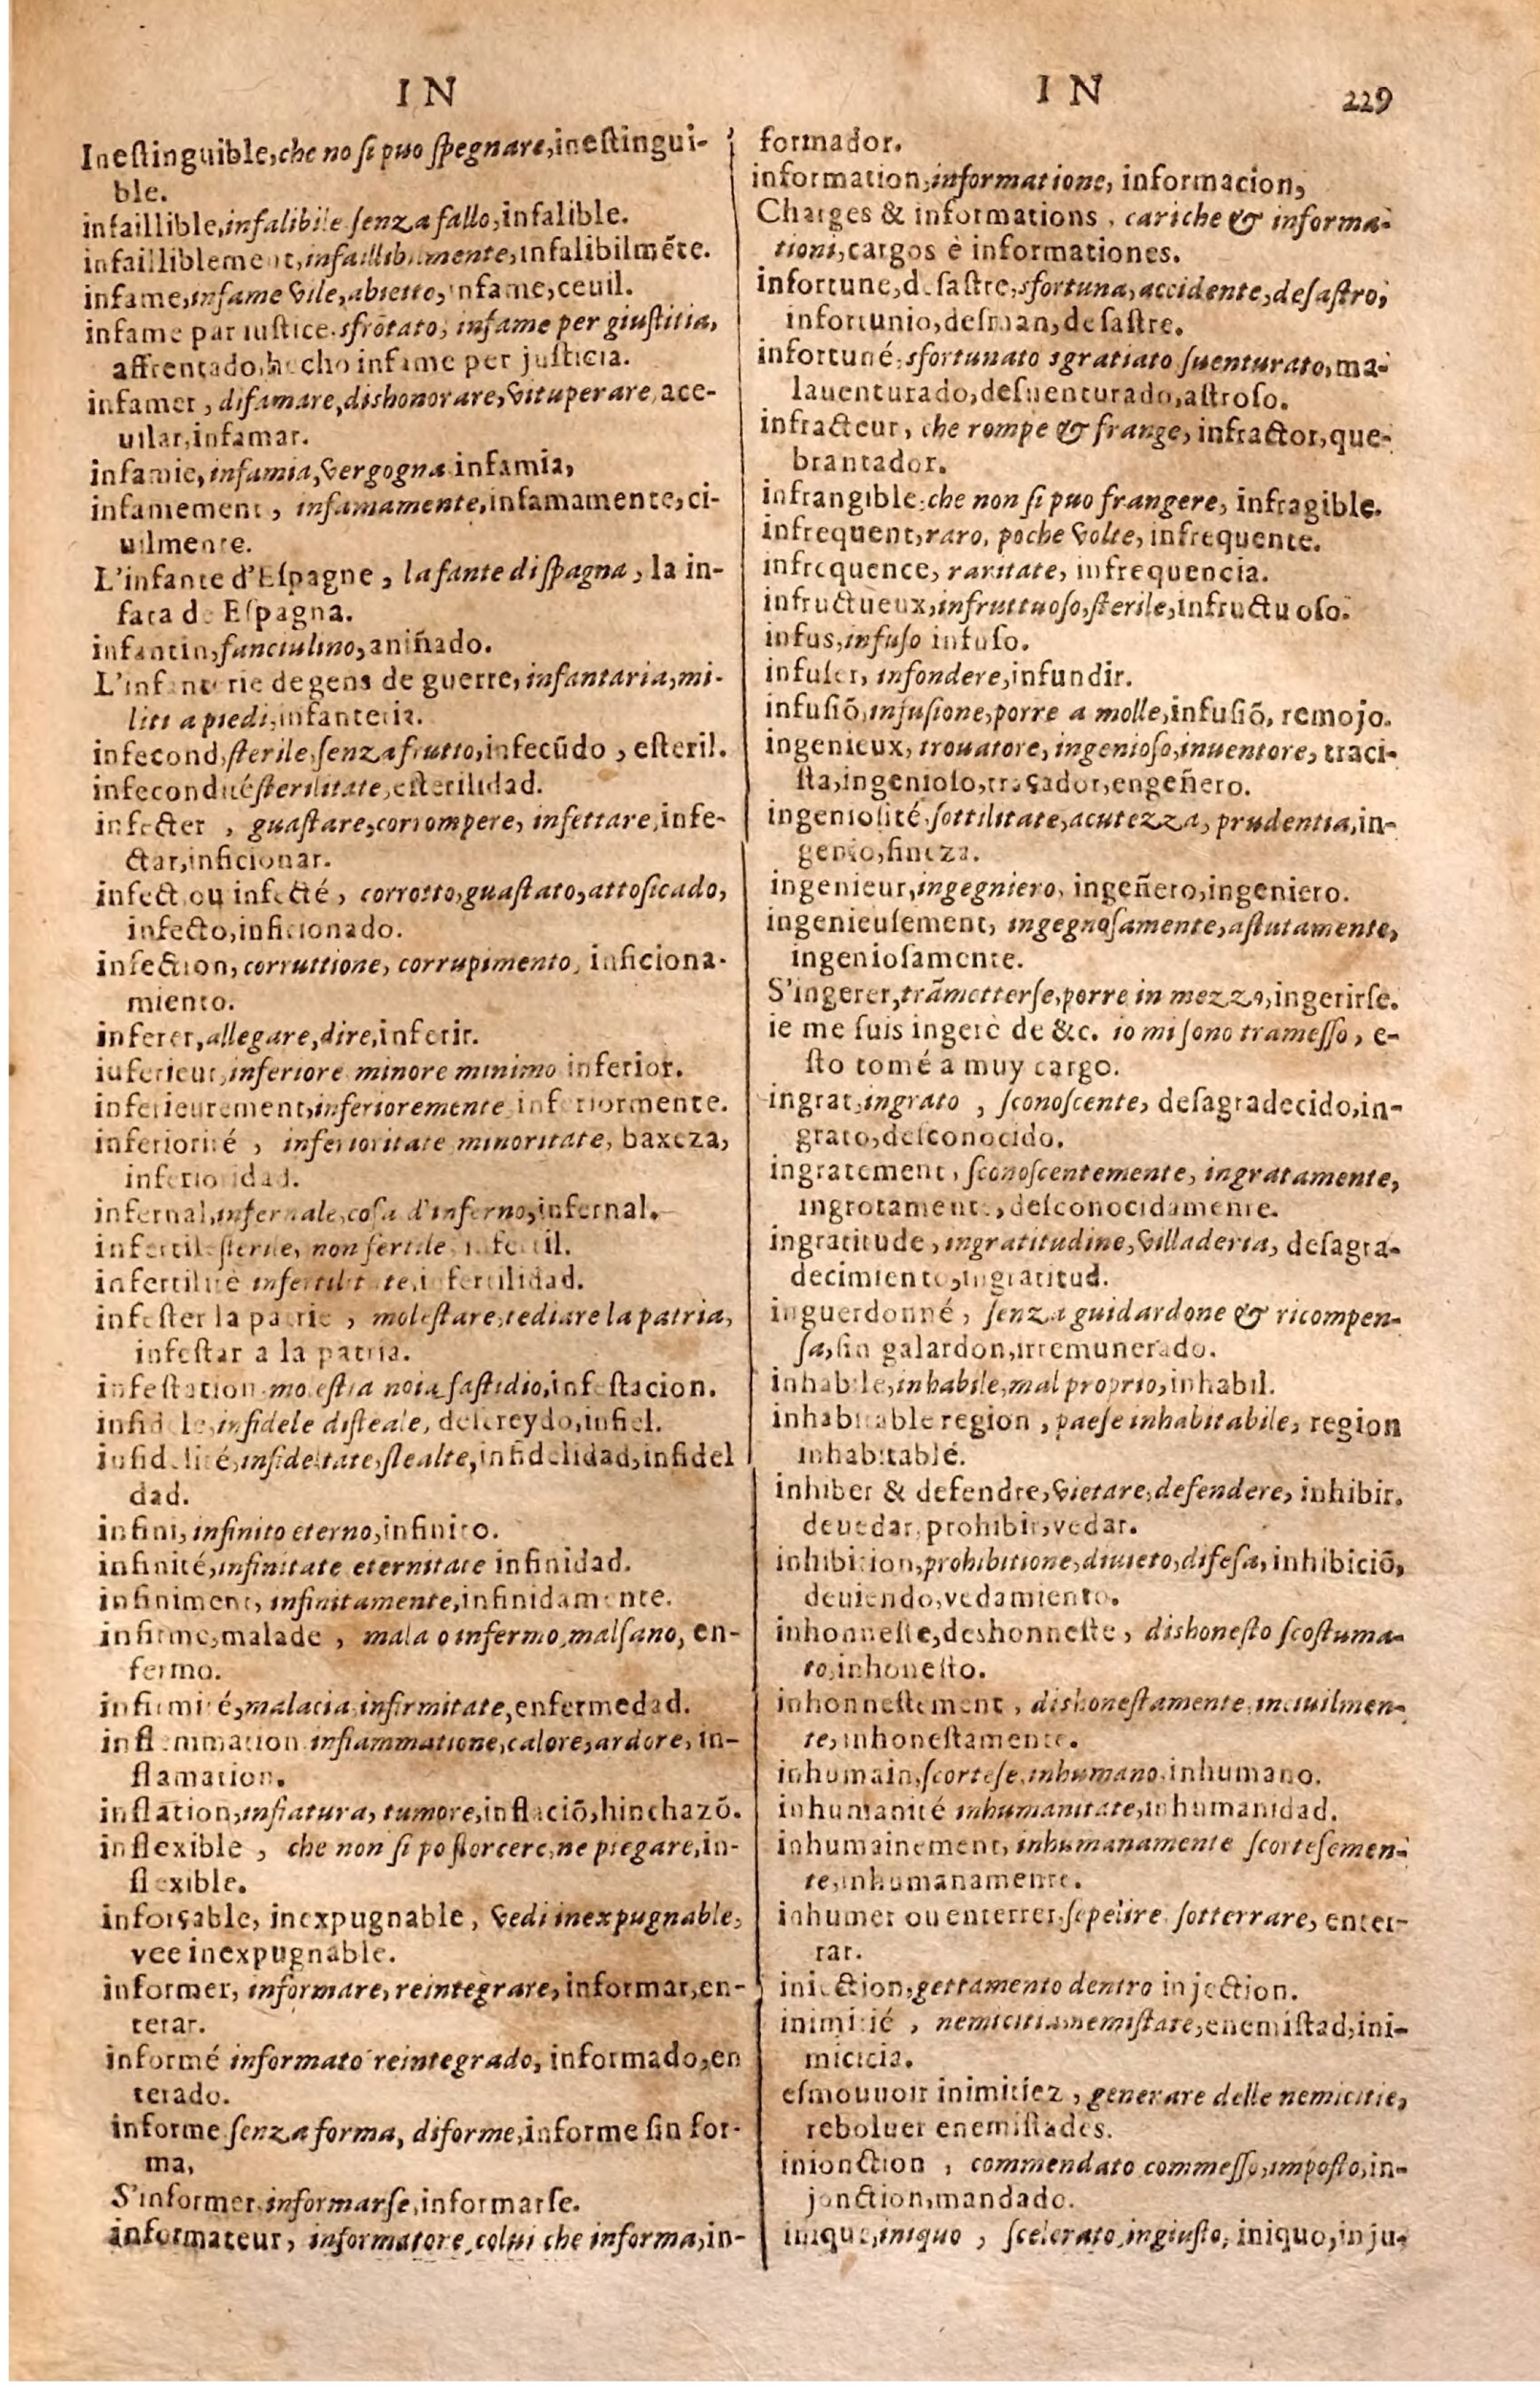 IN
Ineſtinguible, che no ſi puo ſpegnare, ineſtingui-
ble.
infaillible, infalibile ſenza fallo, infalible.
infailliblement, infaillibilmente, infalibilmẽte.
infame, infame vile, abietto, infame, ceuil.
infame par iuſtice. sfrõtato, infame per giuſtitia,
affrentado, hecho infame per juſticia.
infamer, difamare, dishonorare, vituperare, ace-
uilar, infamar.
infamie, infamia, vergogna infamia,
infamement, infamamente, infamamente, ci-
uilmente.
L'infante d'Eſpagne, la fante di ſpagna, la in-
fata de Eſpagna.
infantin, fanciulino, aniñado.
L'infanterie de gens de guerre, infantaria, mi-
liti a piedi, infanteria.
infecond, ſterile, ſenza frutto, infecũdo, eſteril.
infecondité ſterilitate, eſterilidad.
infecter, guaſtare, corrompere, infettare, infe-
ctar, inficionar.
infect ou infecté, corrotto, guaſtato, attoſicado,
infecto, inficionado.
infection, corruttione, corrupimento, inficiona-
miento.
inferer, allegare, dire, inferir.
inferieur, inferiore minore minimo inferior.
inferieurement, inferioremente inferiormente.
inferiorité, inferioritate minoritate, baxeza,
inferioridad.
infernal, infernale, coſa d'inferno, infernal.
infertil ſterile, non fertile infertil.
infertilité infertilitate, infertilidad.
infeſter la patrie, moleſtare, tediare la patria,
infeſtar a la patria.
infeſtation moleſtia noia faſtidio, infeſtacion.
infidele, infidele diſleale, deſcreydo, infiel.
infidelité, infidelitate, ſlealte, infidelidad, infidel
dad.
infini, infinito eterno, infinito.
infinité, infinitate eternitate infinidad.
infiniment, infinitamente, infinidamente.
infirme, malade, mala o infermo, malſano, en-
fermo.
infirmité, malacia infirmitate, enfermedad.
inflammation infiammatione, calore, ardore, in-
flamation.
inflation, infiatura, tumore, inflaciõ, hinchazõ.
inflexible, che non ſi po ſtorcere, ne piegare, in-
flexible.
inforçable, inexpugnable, vedi inexpugnable,
vee inexpugnable.
informer, informare, reintegrare, informar, en-
terar.
informé informato reintegrado, informado, en
terado.
informe ſenza forma, diforme, informe ſin for-
ma,
S'informer. informarſe, informarſe.
informateur, informatore, colui che informa, in-
IN 229
formador.
information, informatione, informacion,
Charges & informations, cariche & informa-
tioni, cargos è informationes.
infortune, deſaſtre, sfortuna, accidente, deſaſtro,
infortunio, deſman, deſaſtre.
infortuné, sfortunato sgratiato ſuenturato, ma-
lauenturado, deſuenturado, aſtroſo.
infracteur, che rompe & frange, infractor, que-
brantador.
infrangible, che non ſi puo frangere, infragible.
infrequent, raro, poche volte, infrequente.
infrequence, raritate, infrequencia.
infructueux, infruttuoſo, ſterile, infructuoſo.
infus, infuſo infuſo.
infuſer, infondere, infundir.
infuſiõ, infuſione, porre a molle, infuſiõ, remojo.
ingenieux, trouatore, ingenioſo, inuentore, traci-
ſta, ingenioſo, traçador, engeñero.
ingenioſité ſottilitate, acutezza, prudentia, in-
genio, fineza.
ingenieur, ingegniero, ingeñero, ingeniero.
ingenieuſement, ingegnoſamente, aſtutamente,
ingenioſamente.
S'ingerer, trãmetterſe, porre in mezzo, ingerirſe.
ie me ſuis ingerè de &c. io mi ſono trameſſo, e-
ſto tomé a muy cargo.
ingrat, ingrato, ſconoſcente, deſagradecido, in-
grato, deſconocido.
ingratement, ſconoſcentemente, ingratamente,
ingrotamente, deſconocidamente.
ingratitude, ingratitudine, villaderia, deſagra-
decimiento, ingratitud.
inguerdonné, ſenza guidardone & ricompen-
ſa, ſin galardon, irremunerado.
inhabile, inhabile, mal proprio, inhabil.
inhabitable region, paeſe inhabitabile, region
inhabitablé.
inhiber & defendre, vietare, defendere, inhibir.
deuedar, prohibir, vedar.
inhibition, prohibitione, diuieto, difeſa, inhibiciõ,
deuiendo, vedamiento.
inhonneſte, deshonneſte, dishoneſto ſcoſtuma-
to, inhoneſto.
inhonneſtement, dishoneſtamente, inciuilmen-
te, inhoneſtamente.
inhumain, ſcorteſe, inhumano, inhumano.
inhumanité inhumanitate, inhumanidad.
inhumainement, inhumanamente ſcorteſemen-
te, inhumanamente.
inhumer ou enterrer, ſepelire ſotterrare, enter-
rar.
iniection, gettamento dentro injection.
inimitié, nemicitia, nemiſtate, enemiſtad, ini-
micicia.
eſmouuoir inimitiez, generare delle nemicitie,
reboluer enemiſtades.
inionction, commendato commeſſo, impoſto, in-
jonction, mandado.
inique, iniquo, ſcelerato, ingiuſto, iniquo, inju-